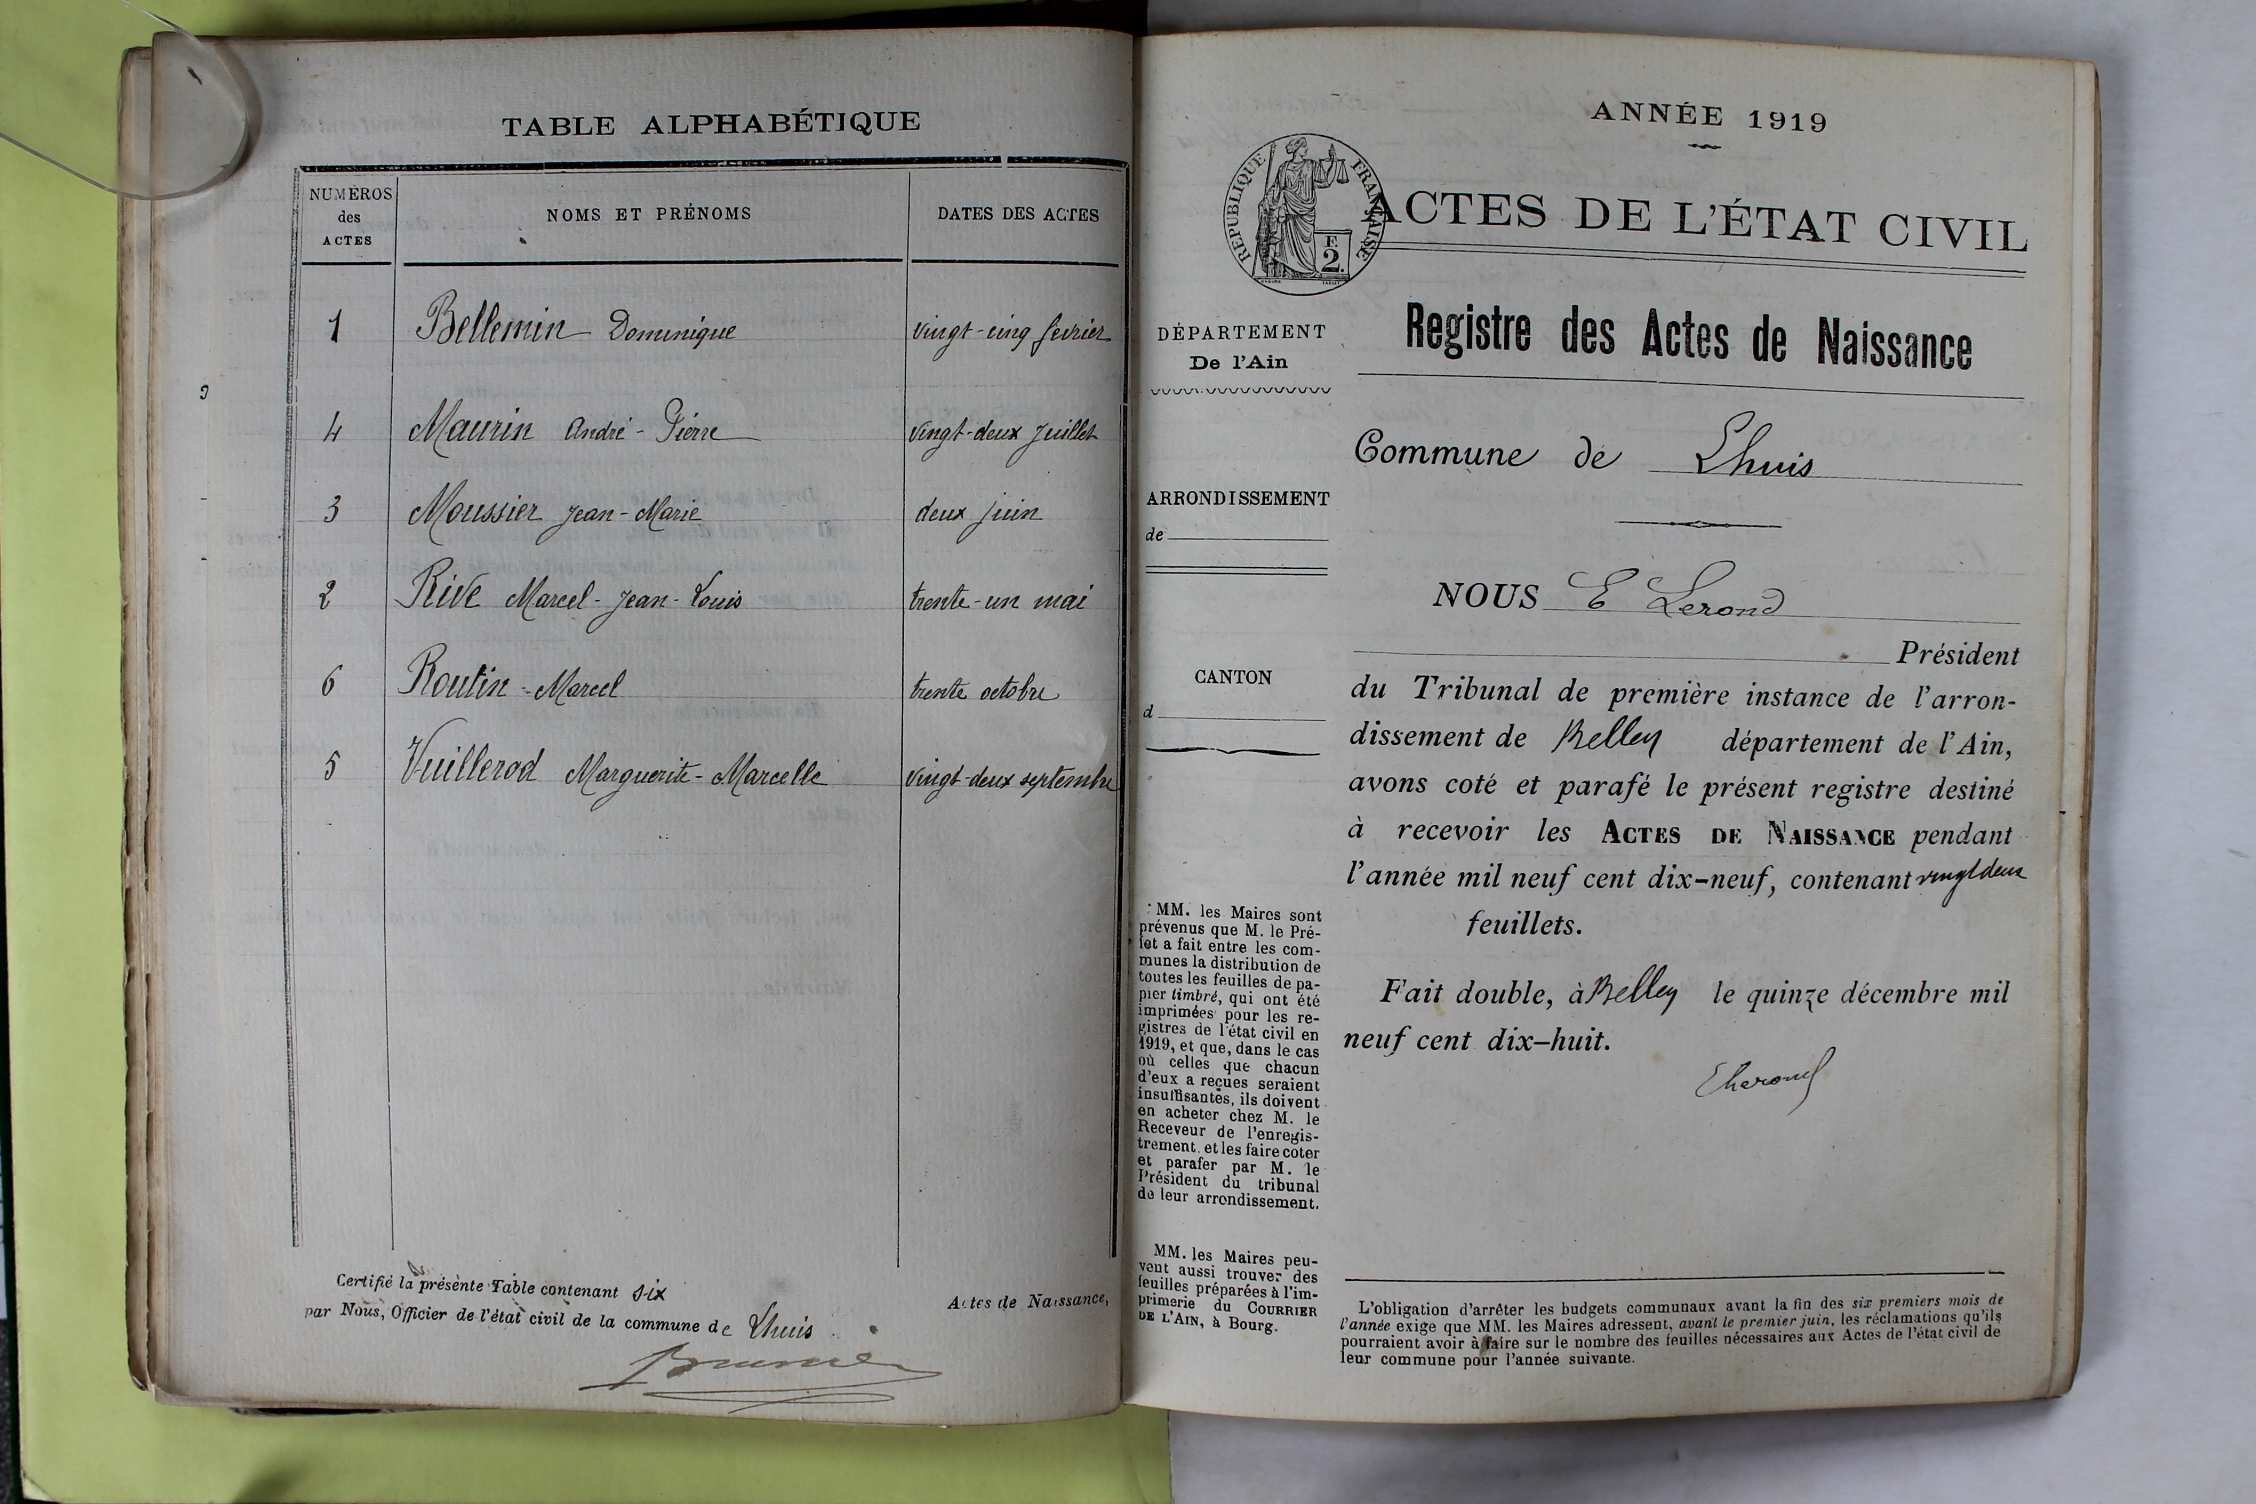 TABLE ALPHABÉTIQUE
NUMÉROS
des
ACTES
NOMS ET PRÉNOMS
DATES DES ACTES
1 Bellemin Dominique vingt-cinq fevrier
4 Maurin André-Pierre vingt-deux Juillet
3 Moussier Jean-Marie deux juin
2 Rive Marcel-Jean-Louis trente-un mai
6 Routin-Marcel trente octobre
5 Vuillerod Marguerite-Marcelle vingt-deux septembre
Certifié la présente Table contenant six
Actes de Naissance,
par Nous, Officier de l'état civil de la commune de Lhuis
ANNÉE 1919
RÉPUBLIQUE FRANÇAISE
F.
2.
ACTES DE L'ÉTAT CIVIL
Registre des Actes de Naissance
DÉPARTEMENT
De l'Ain
ARRONDISSEMENT
de
CANTON
d
MM. les Maires sont
prévenus que M. le Pré-
fet a fait entre les com-
munes la distribution de
toutes les feuilles de pa-
pier timbré, qui ont été
imprimées pour les re-
gistres de l'état civil en
1919, et que, dans le cas
où celles que chacun
d'eux a reçues seraient
insuffisantes, ils doivent
en acheter chez M. le
Receveur de l'enregis-
trement, et les faire coter
et parafer par M. le
Président du tribunal
de leur arrondissement.
MM. les Maires peu-
vent aussi trouver des
feuilles préparées à l'im-
primerie du COURRIER
DE L'AIN, à Bourg.
Commune de Lhuis
NOUS E Lerond
Président
du Tribunal de première instance de l'arron-
dissement de Belley département de l'Ain,
avons coté et parafé le présent registre destiné
à recevoir les ACTES DE NAISSANCE pendant
l'année mil neuf cent dix-neuf, contenant vingt deux
feuillets.
Fait double, à Belley le quinze décembre mil
neuf cent dix-huit.
L'obligation d'arrêter les budgets communaux avant la fin des six premiers mois de
l'année exige que MM. les Maires adressent, avant le premier juin, les réclamations qu'ils
pourraient avoir à faire sur le nombre des feuilles nécessaires aux Actes de l'état civil de
leur commune pour l'année suivante.